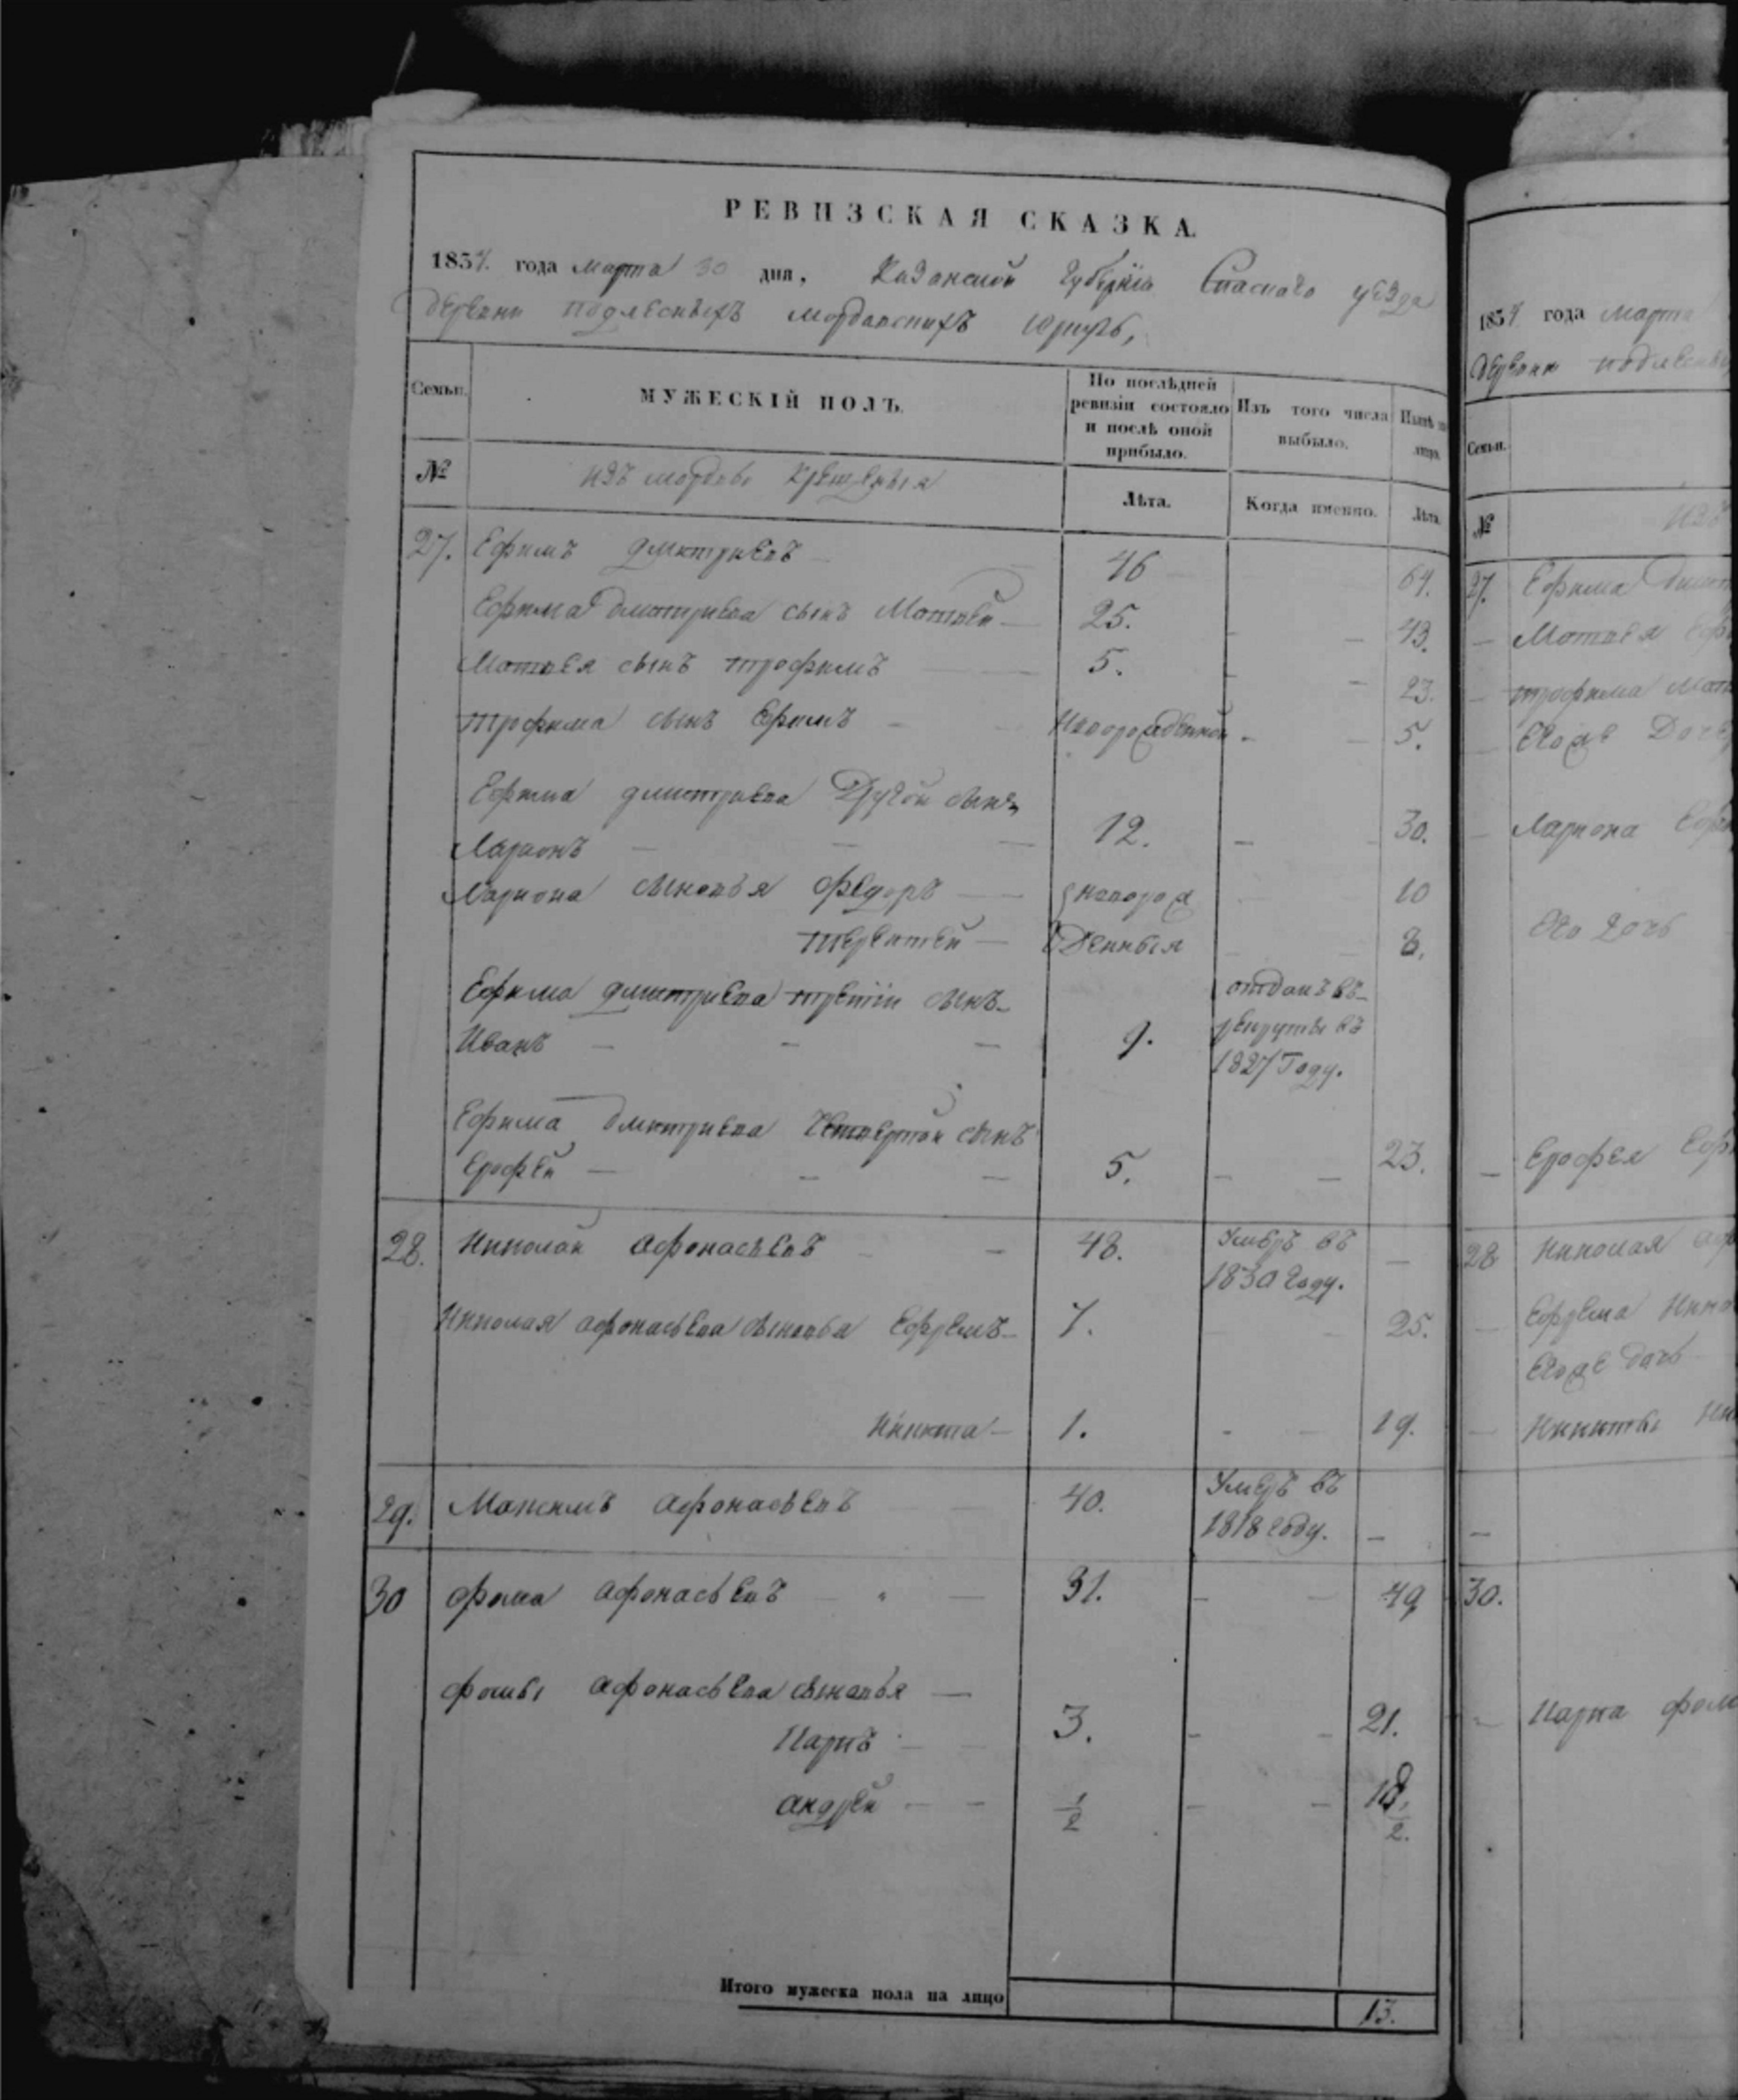 РЕВИЗСКАЯ СКАЗКА.
1834. года марта 30 дня, Казанской губерніи Спаскаго уѣзда
деревни подлесныхъ мордовскихъ Юркуль,
Семьи. МУЖЕСКІЙ ПОЛЪ. По послѣдней ревизіи состояло и послѣ оной прибыло. Изъ того числа выбыло. Нынѣ на лицо.
№ изъ мордвы крещеныя Лѣта. Когда именно. Лѣта.
27. Ефимъ дмитриевъ 46 64.
Ефима дмитриева сынъ Матвей 25. 43.
Матвея сынъ трофимъ 5. 23.
трофима сынъ Ефимъ Новорожденной 5.
Ефима дмитриева Другой сынъ
Ларионъ 12. 30.
Лариона сыновья федоръ новорож 10
терентей Денныя 8.
Ефима дмитриева третiй сынъ
Иванъ 9. отданъ въ рекруты въ 1827 Году.
Ефима дмитриева Четвертой сынъ
Ерофей 5. 23.
28. Николай афонасьевъ 48. Умеръ въ 1830 Году.
Николая афонасьева сыновья Ефремъ 7. 25.
Никита 1. 19.
29. Максимъ афонасьевъ 40. Умеръ въ 1818 году.
30 фома афонасьевъ 31. 49
фомы афонасьева сыновья
Карпъ 3. 21.
андрей 1/2 18 1/2.
Итого мужеска пола на лицо 13.
1834 года марта
деревни подлесны
Семьи.
№ изъ
27. Ефима дмит
Матвея Еф
трофима Мат
Егоже Доч
Лариона Ефи
Его дочь
Ерофея Еф
28 Николая аф
Ефрема Нико
Егоже дочь
Никиты Ни
30.
Карпа фом